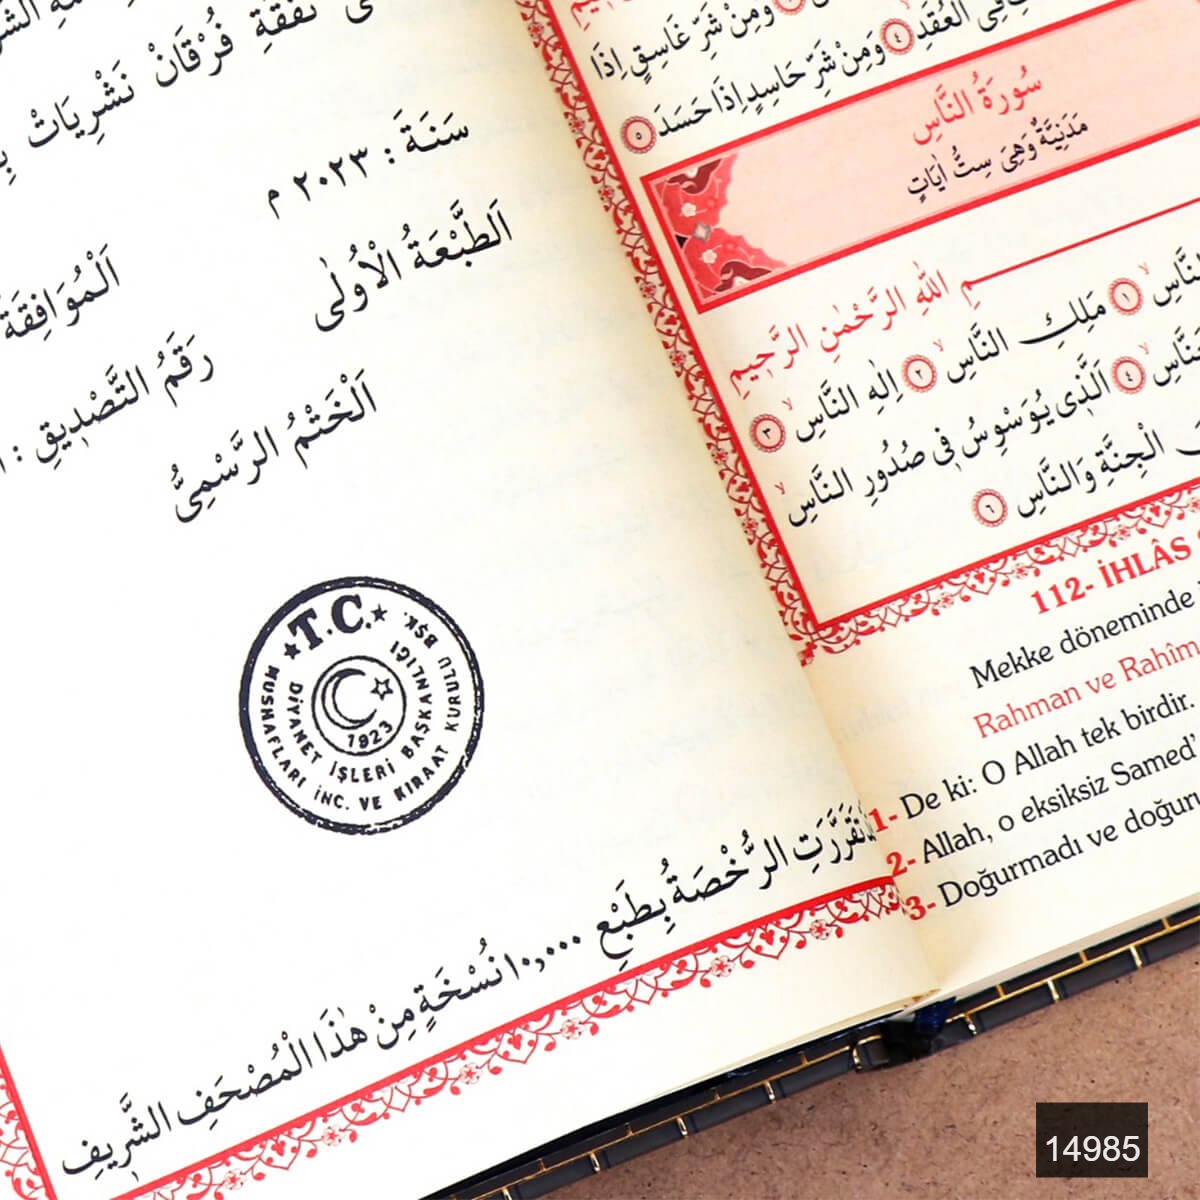 نَفَقَةِ فُرْقَانْ نَشْرِيَاتْ
سَنَةَ : ٢٠٢٣ م
اَلطَّبْعَةُ الْاُولٰى
اَلْمُوَافِقَةُ
رَقَمُ التَّصْدِيقِ :
اَلْخَتْمُ الرَّسْمِىُّ
★T.C.★
MUSHAFLARI İNC. VE KIRAAT KURULU BŞK.
DİYANET İŞLERİ BAŞKANLIĞI
1923
تَقَرَّرَتِ الرُّخْصَةُ بِطَبْعِ ١٠,٠٠٠ نُسْخَةٍ مِنْ هٰذَا الْمُصْحَفِ الشَّرِيفِ
فِى الْعُقَدِ ٤ وَمِنْ شَرِّ حَاسِدٍ اِذَا حَسَدَ ٥
وَمِنْ شَرِّ غَاسِقٍ اِذَا
سُورَةُ النَّاسِ
مَدَنِيَّةٌ وَهِىَ سِتُّ اٰيَاتٍ
ـمِ اللّٰهِ الرَّحْمٰنِ الرَّحٖيمِ
النَّاسِ ١ مَلِكِ النَّاسِ ٢ اِلٰهِ النَّاسِ ٣
ـنَّاسِ ٤ اَلَّذٖى يُوَسْوِسُ فٖى صُدُورِ النَّاسِ ٥
الْجِنَّةِ وَالنَّاسِ ٦
112- İHLÂS
Mekke döneminde
Rahman ve Rahîm
1- De ki: O Allah tek birdir.
2- Allah, o eksiksiz Samed’
3- Doğurmadı ve doğuru
14985